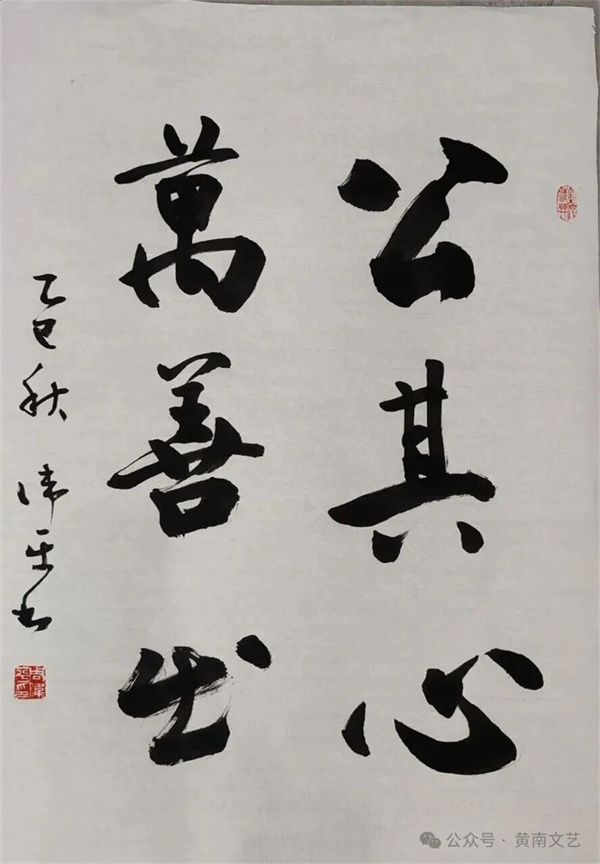 公其心
萬善出
乙巳秋 偉平书
公众号·黄南文艺